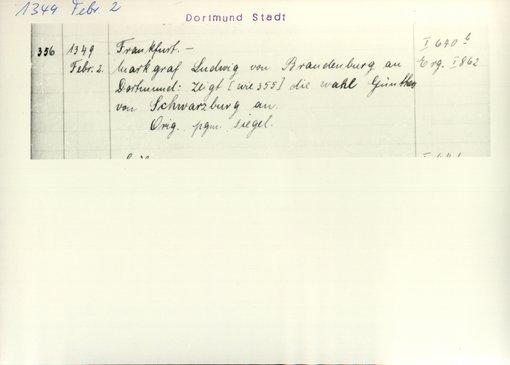 1349 Febr. 2
Dortmund Stadt
356 1349 Frankfurt. — I 640 b
Febr. 2. Markgraf Ludwig von Brandenburg an Erg. I 862
Dortmund: zeigt [wie 355] die wahl Günther
von Schwarzburg an.
Orig. pgm. siegel.